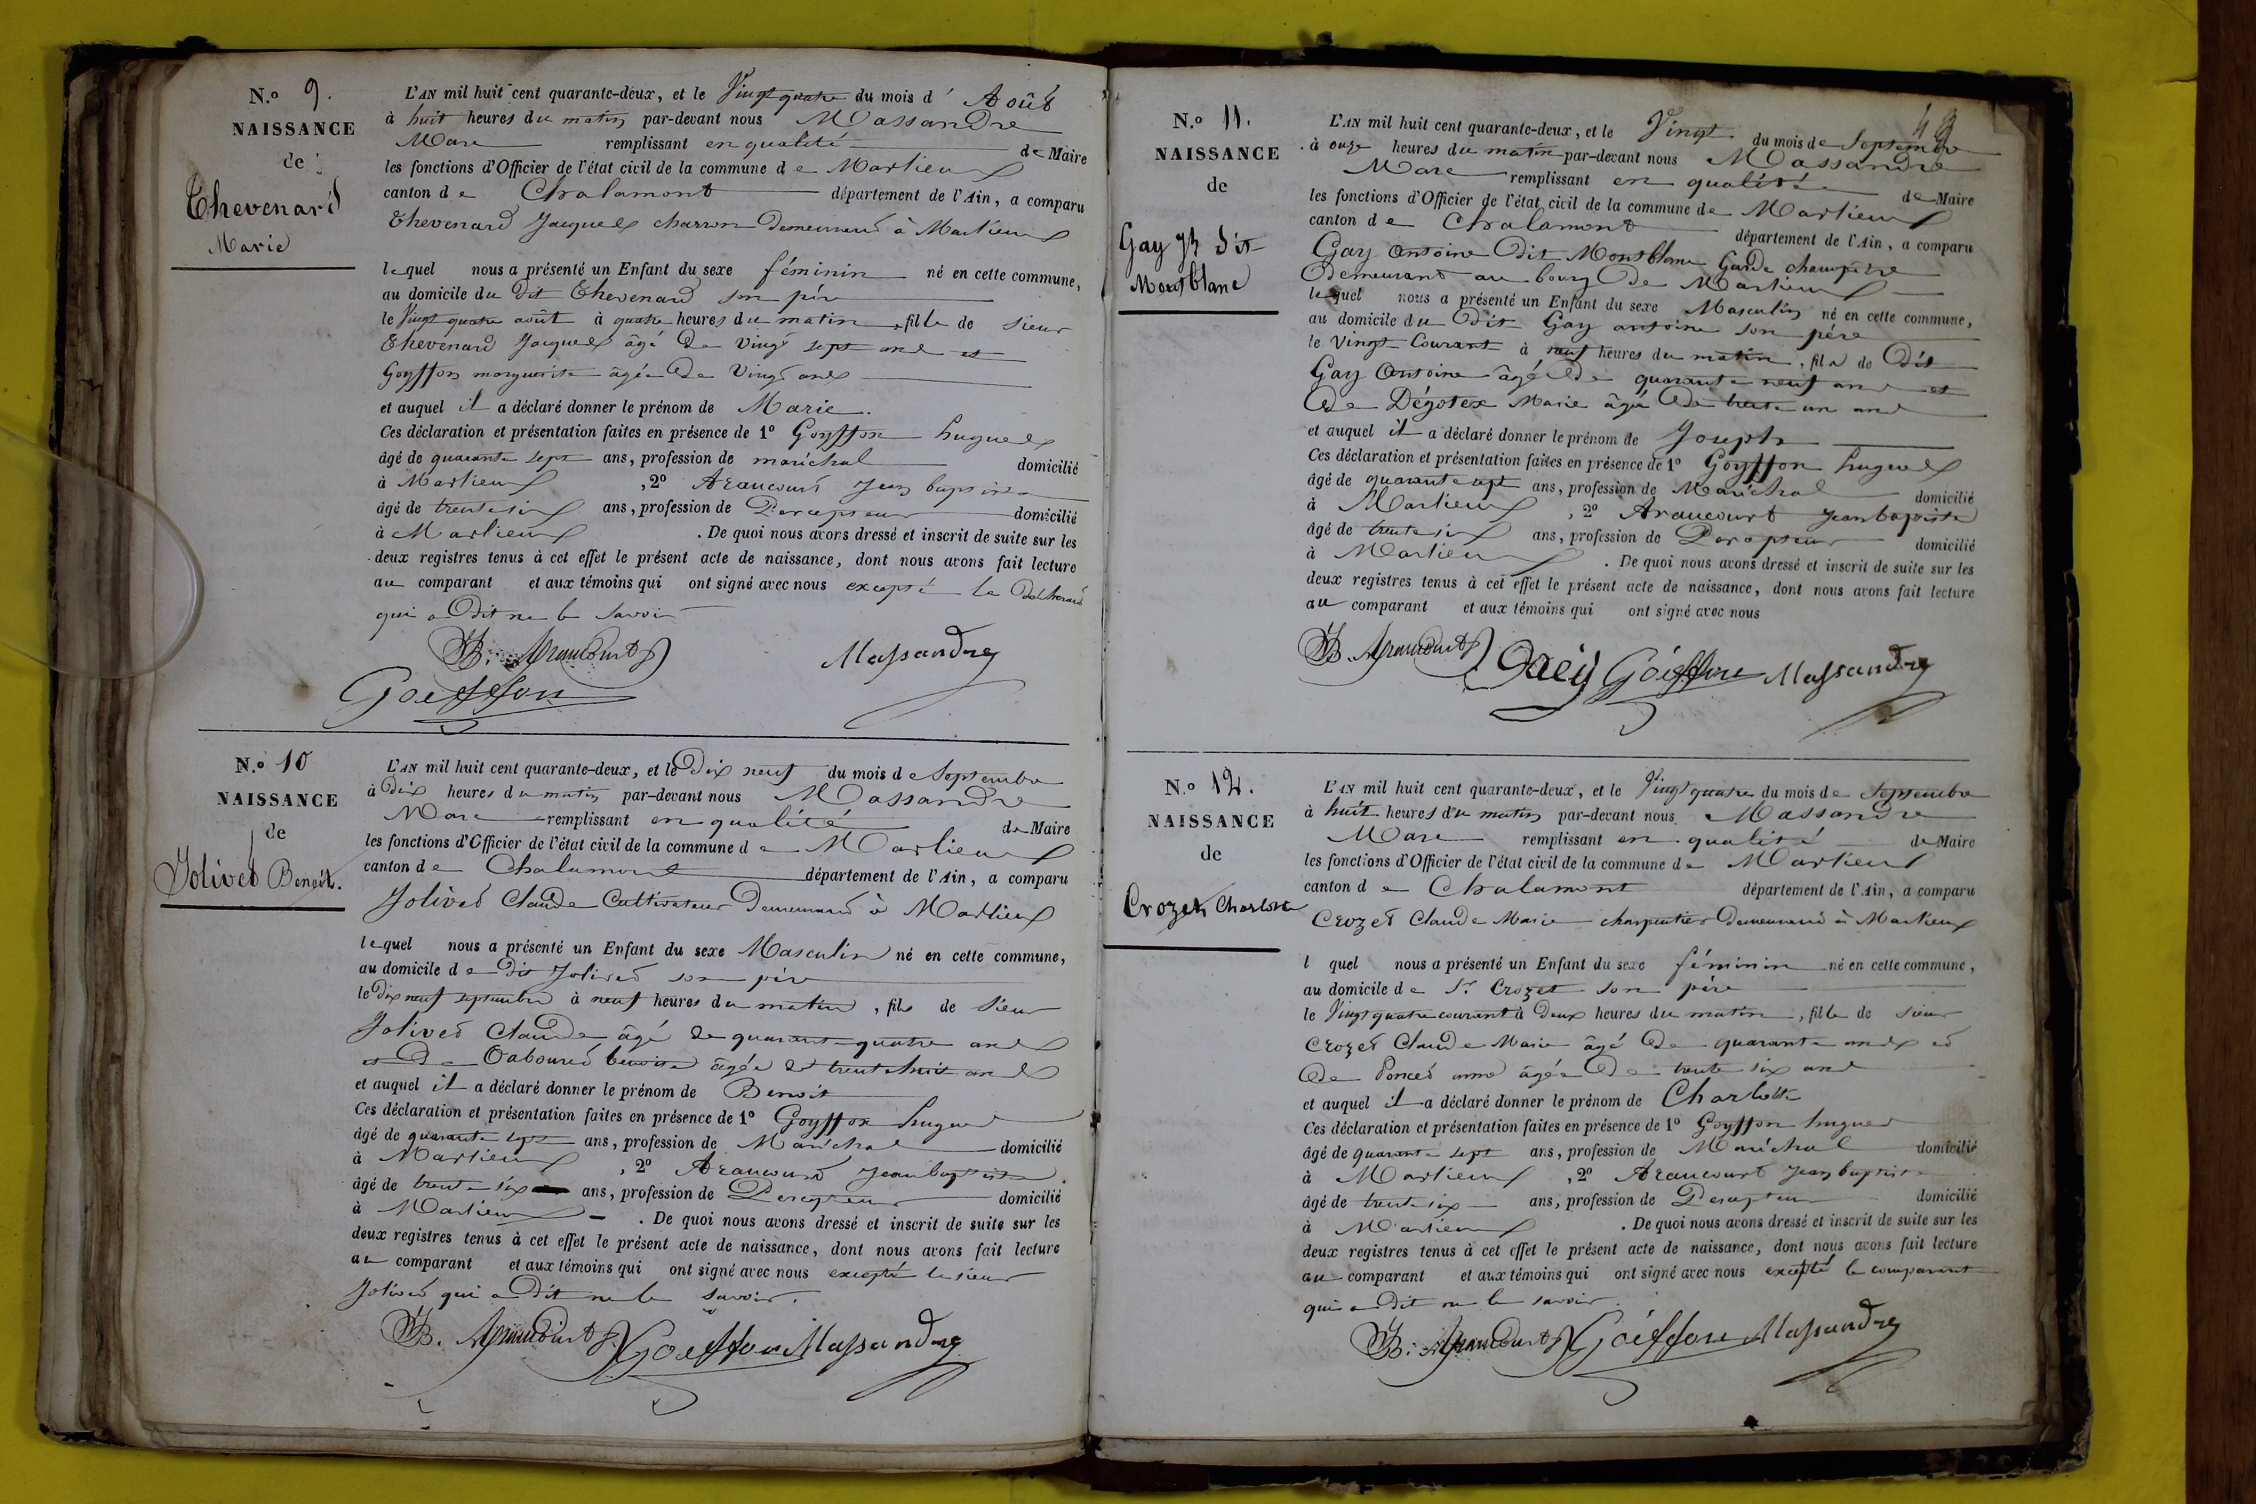 N.º 9.
NAISSANCE
de
Thevenard
Marie
L'AN mil huit cent quarante-deux, et le Vingt quatre du mois d' Août
à huit heures du matin par-devant nous Massandre
Marc remplissant en qualité de Maire
les fonctions d'Officier de l'état civil de la commune de Marlieux
canton de Chalamont département de l'Ain, a comparu
Thevenard Jacques charron demeurant à Marlieux
lequel nous a présenté un Enfant du sexe féminin né en cette commune,
au domicile du dit Thevenard son père
le Vingt quatre août à quatre heures du matin, fille de sieur
Thevenard Jacques âgé de Vingt sept ans et
Goyffon marguerite âgée de Vingt ans
et auquel il a déclaré donner le prénom de Marie.
Ces déclaration et présentation faites en présence de 1º Goyffon hugues
âgé de quarante sept ans, profession de maréchal domicilié
à Marlieux, 2º Araucourt Jean baptiste
âgé de trente six ans, profession de Percepteur domicilié
à Marlieux. De quoi nous avons dressé et inscrit de suite sur les
deux registres tenus à cet effet le présent acte de naissance, dont nous avons fait lecture
au comparant et aux témoins qui ont signé avec nous excepté le
qui a dit ne le savoir
JB. Araucourt Massandre
Goeffon
N.º 10
NAISSANCE
de
Jolivet Benoit.
L'AN mil huit cent quarante-deux, et le dix neuf du mois de Septembre
à Dix heures du matin par-devant nous Massandre
Marc remplissant en qualité de Maire
les fonctions d'Officier de l'état civil de la commune de Marlieux
canton de Chalamont département de l'Ain, a comparu
Jolivet Claude Cultivateur demeurant à Marlieux
lequel nous a présenté un Enfant du sexe Masculin né en cette commune,
au domicile de dit Jolivet son père
le dix neuf septembre à neuf heures du matin, fils de sieur
Jolivet Claude âgé de quarante quatre ans
et de benoite âgée de trente huit ans
et auquel il a déclaré donner le prénom de Benoit
Ces déclaration et présentation faites en présence de 1º Goyffon hugues
âgé de quarante sept ans, profession de Maréchal domicilié
à Marlieux, 2º Araucourt Jean baptiste
âgé de trente six ans, profession de Percepteur domicilié
à Marlieux. De quoi nous avons dressé et inscrit de suite sur les
deux registres tenus à cet effet le présent acte de naissance, dont nous avons fait lecture
au comparant et aux témoins qui ont signé avec nous excepté le sieur
Jolivet qui a dit ne le savoir.
JB. Araucourt Goeffon Massandre
N.º 11.
NAISSANCE
de
Gay Jh dit
Montblanc
L'AN mil huit cent quarante-deux, et le Vingt du mois de Septembre
à onze heures du matin par-devant nous Massandre
Marc remplissant en qualité de Maire
les fonctions d'Officier de l'état civil de la commune de Marlieux
canton de Chalamont département de l'Ain, a comparu
Gay Antoine dit Montblanc Garde champêtre
demeurant au bourg de Marlieux
lequel nous a présenté un Enfant du sexe Masculin né en cette commune,
au domicile du dit Gay antoine son père
le Vingt Courant à neuf heures du matin, fils de dit
Gay Antoine âgé de quarante neuf ans et
de Dégotex Marie âgée de trente un ans
et auquel il a déclaré donner le prénom de Joseph
Ces déclaration et présentation faites en présence de 1º Goyffon hugues
âgé de quarante sept ans, profession de Maréchal domicilié
à Marlieux, 2º Araucourt Jean baptiste
âgé de trente six ans, profession de Percepteur domicilié
à Marlieux. De quoi nous avons dressé et inscrit de suite sur les
deux registres tenus à cet effet le présent acte de naissance, dont nous avons fait lecture
au comparant et aux témoins qui ont signé avec nous
JB. Araucourt Goeffon Massandre
N.º 12.
NAISSANCE
de
Crozet Charlotte
L'AN mil huit cent quarante-deux, et le Vingt quatre du mois de Septembre
à huit heures du matin par-devant nous Massandre
Marc remplissant en qualité de Maire
les fonctions d'Officier de l'état civil de la commune de Marlieux
canton de Chalamont département de l'Ain, a comparu
Crozet Claude Marie charpentier demeurant à Marlieux
l quel nous a présenté un Enfant du sexe féminin né en cette commune,
au domicile de Sr Crozet son père
le Vingt quatre courant à deux heures du matin, fille de sieur
Crozet Claude Marie âgé de quarante ans et
de Poncet anne âgée de trente six ans
et auquel il a déclaré donner le prénom de Charlotte
Ces déclaration et présentation faites en présence de 1º Goyffon hugues
âgé de quarante sept ans, profession de Maréchal domicilié
à Marlieux, 2º Araucourt Jean baptiste
âgé de trente six ans, profession de Percepteur domicilié
à Marlieux. De quoi nous avons dressé et inscrit de suite sur les
deux registres tenus à cet effet le présent acte de naissance, dont nous avons fait lecture
au comparant et aux témoins qui ont signé avec nous excepté le comparant
qui a dit ne le savoir.
JB. Araucourt Goeffon Massandre